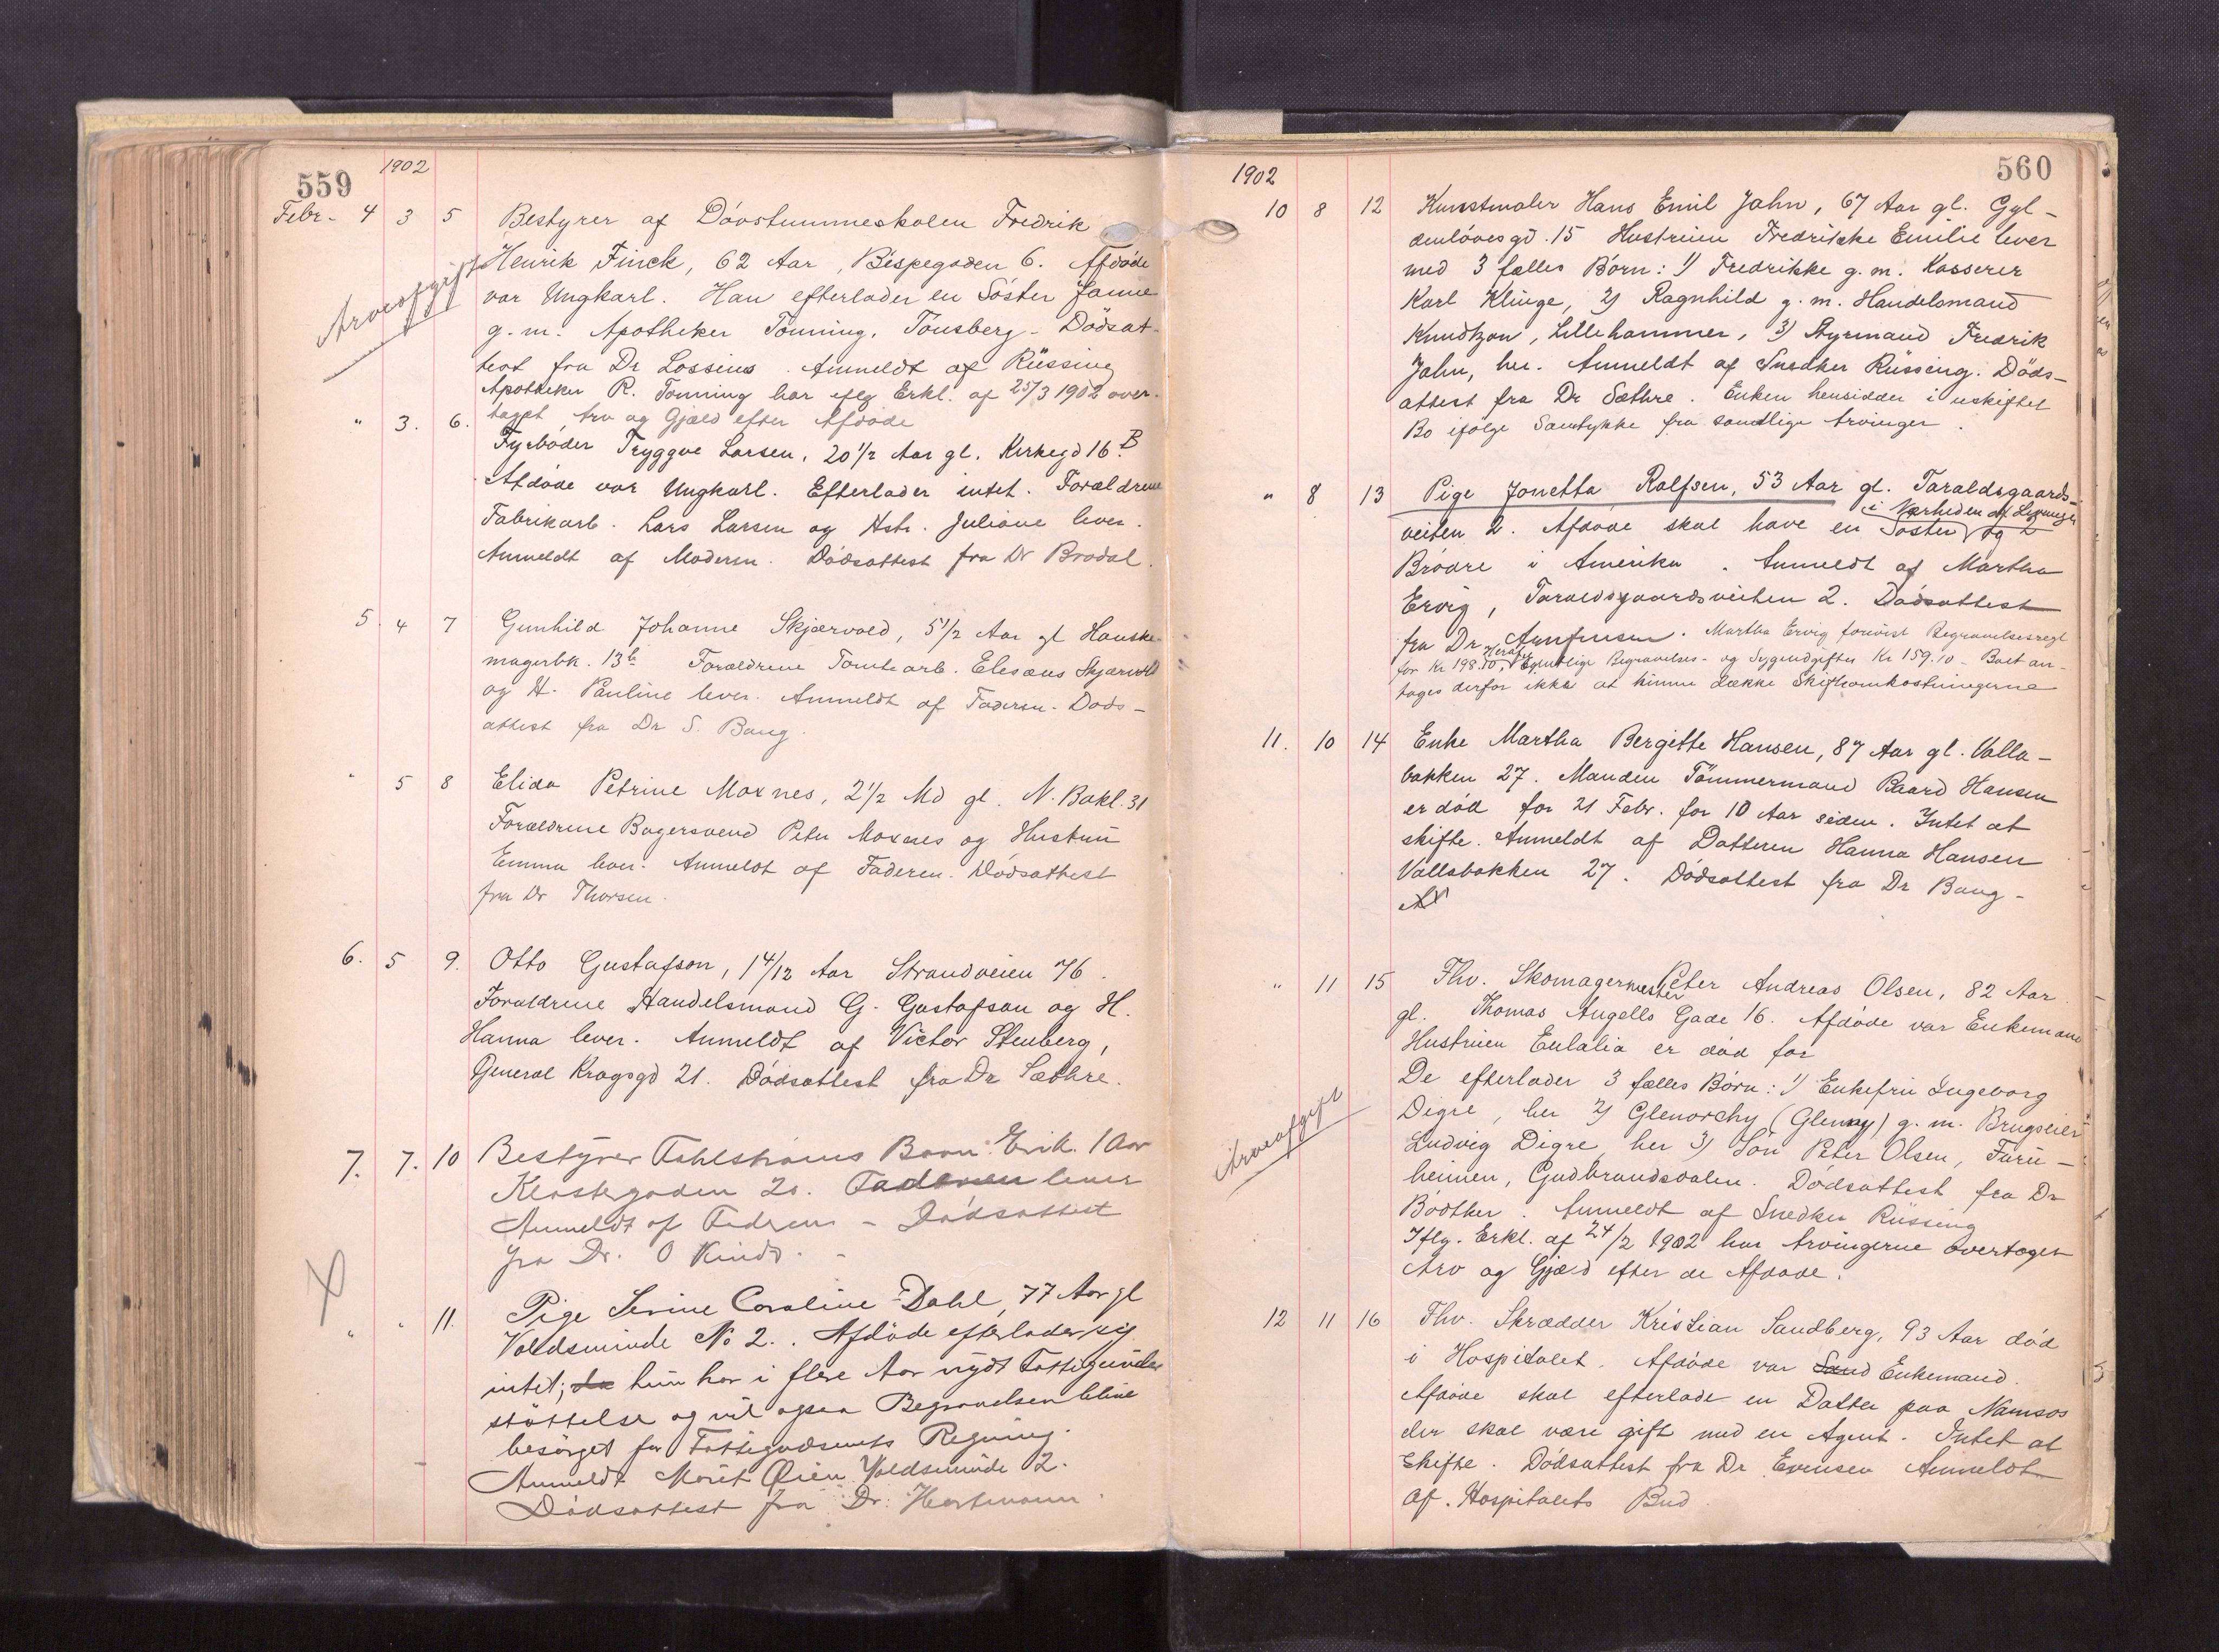 559
1902
Febr. 4 3 5 Bestyrer af Døvstummeskolen Fredrik
Henrik Finck, 62 Aar, Bispegaden 6. Afdøde
Arveafgift
var Ungkarl. Han efterlader en Søster Janne
g. m. Apotheker Tonning, Tønsberg - Dødsat-
test fra Dr Lossius. Anmeldt af Rüssing
Apotheker R. Tonning har iflg Erkl. af 25/3 1902 over-
taget Arv og Gjæld efter Afdøde
" 3. 6. Fyrbøder Tryggve Larsen, 20 1/2 Aar gl. Kirkegd 16 B.
Afdøde var Ungkarl. Efterlader intet. Forældrene
Fabrikarb. Lars Larsen og Hstr. Juliane lever.
Anmeldt af Moderen. Dødsattest fra Dr Brodal.
5. 4 7 Gunhild Johanne Skjærvold, 5 1/2 Aar gl Hanske-
magerbk. 13 b Forældrene Tomtearb. Elesæus Skjærvold
og H. Pauline lever. Anmeldt af Faderen. Døds-
attest fra Dr S. Bang.
" 5 8 Elida Petrine Moxnes, 2 1/2 Md gl. N. Bakl. 31
Forældrene Bagersvend Peter Moxnes og Hustru
Emma lever. Anmeldt af Faderen. Dødsattest
fra Dr Thorsen.
6. 5 9. Otto Gustafson, 1 4/12 Aar Strandveien 76.
Forældrene Handelsmand G. Gustafson og H.
Hanna lever. Anmeldt af Victor Stenberg,
General Kragsgd 21. Dødsattest fra Dr Sæthre.
7. 7. 10 Bestyrer Fahlstrøms Barn Erik. 1 Aar
Klostergaden 20. Faderen lever
Anmeldt af Faderen - Dødsattest
fra Dr. O Kindt. -
X
" " 11. Pige Serine Caroline Dahl, 77 Aar gl
Voldsminde No 2. Afdøde efterlader sig
intet; da hun har i flere Aar nydt Fattigunder
støttelse og vil ogsaa Begravelsen blive
besørget for Fattigvæsenets Regning.
Anmeldt Marit Øien Voldsminde 2.
Dødsattest fra Dr. Hartmann.
560
1902
10 8 12 Kunstmaler Hans Emil Jahn, 67 Aar gl. Gyl-
denløvesgd. 15 Hustruen Fredrikke Emilie lever
med 3 fælles Børn: 1) Fredrikke g. m. Kasserer
Karl Klinge, 2) Ragnhild g. m. Handelsmand
Knudtzon, Lillehammer, 3) Styrmand Fredrik
Jahn, her. Anmeldt af Snedker Rüssing. Døds-
attest fra Dr Sæthre. Enken hensidder i uskiftet
Bo ifølge Samtykke fra samtlige Arvinger.
" 8 13 Pige Jonetta Rolfsen, 53 Aar gl. Taraldsgaards-
i Nærheden af Levanger
veiten 2. Afdøde skal have en Søster og 2
Brødre i Amerika. Anmeldt af Martha
Ervig, Taraldsgaardsveiten 2. Dødsattest
fra Dr Arnfinsen. Martha Ervig forevist Begravelsesregl
for Kr 198.50, Heraf Egentlige Begravelses- og Sygeudgifter Kr 159.10 - Boet an-
tages derfor ikke at kunne dække Skifteomkostningerne
11. 10 14 Enke Martha Bergitte Hansen, 87 Aar gl. Valla-
bakken 27. Manden Tømmermand Baard Hansen
er død for 21 Febr. for 10 Aar siden. Intet at
skifte. Anmeldt af Datteren Hanna Hansen
Vallabakken 27. Dødsattest fra Dr Bang -
" 11 15 Fhv. Skomagermester Peter Andreas Olsen, 82 Aar
gl. Thomas Angells Gade 16. Afdøde var Enkemand
Hustruen Eulalia er død før
De efterlader 3 fælles Børn: 1) Enkefru Ingeborg
Arveafgift
Digre, her 2) Glenorchy (Glenny) g. m. Brugseier
Ludvig Digre, her 3) Søn Peter Olsen, Furu-
heimen, Gudbrandsdalen. Dødsattest fra Dr
Bødtker. Anmeldt af Snedker Rüssing
Iflg. Erkl. af 24/2 1902 har Arvingerne overtaget
Arv og Gjæld efter de Afdøde.
12 11 16 Fhv. Skrædder Kristian Sandberg, 93 Aar død
i Hospitalet. Afdøde var Enkemand.
Afdøde skal efterlade en Datter paa Namsos
der skal være gift med en Agent. Intet at
skifte. Dødsattest fra Dr Evensen Anmeldt
af Hospitalets Bud.